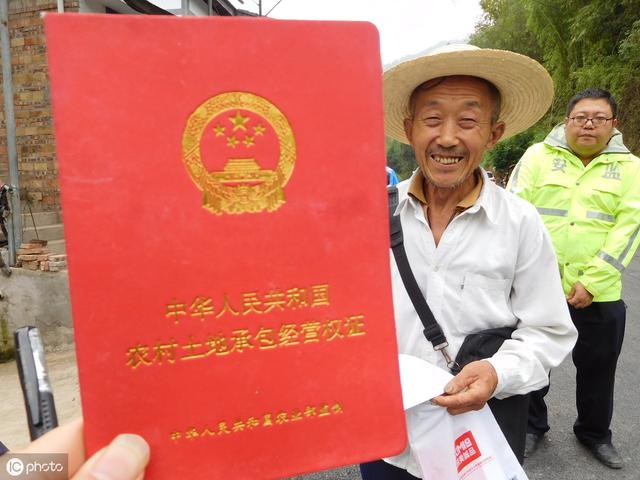 中华人民共和国
农村土地承包经营权证
中华人民共和国农业部监制
安 监
iC photo